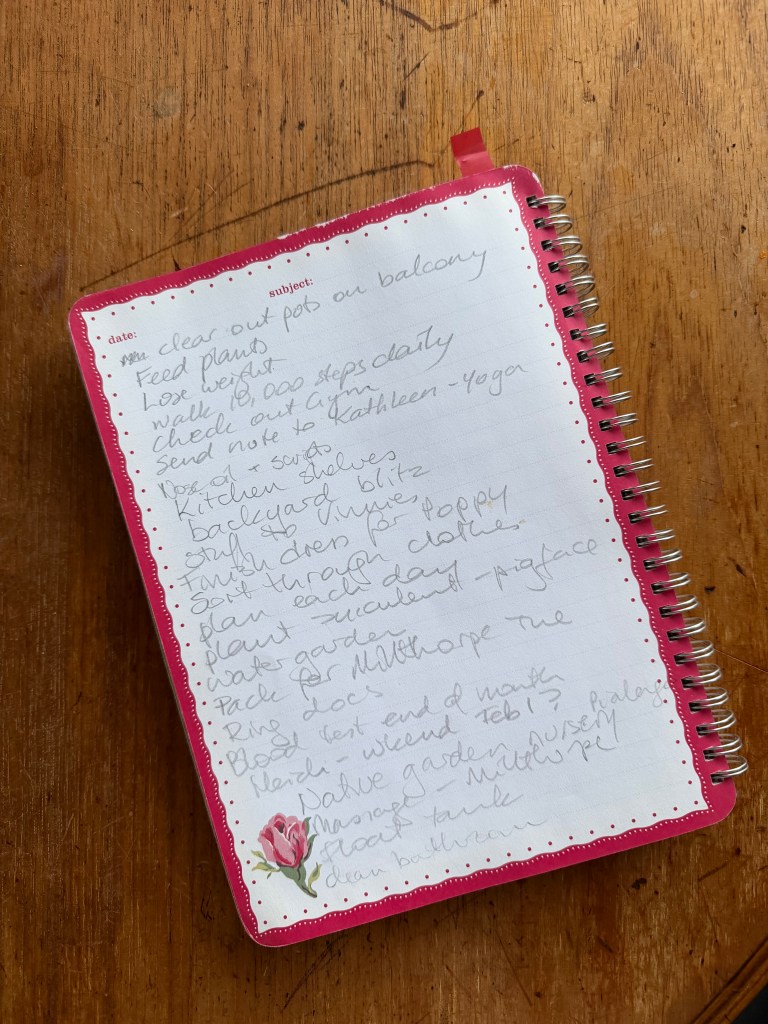 subject:
date:
clear out pots on balcony
Feed plants
Lose weight
walk 10,000 steps daily
check out Gym
Send note to Kathleen - Yoga
Nose oil + scripts
Kitchen shelves
backyard blitz
stuff to Vinnies
Finish dress for Poppy
Sort through clothes
plan each day
plant succulent - pigface
water garden
Pack for Millthorpe Tue
Ring docs
Blood test end of month
Heidi - wkend Feb 1?
Native garden nursery
Massage - Millthorpe
float tank
clean bathroom